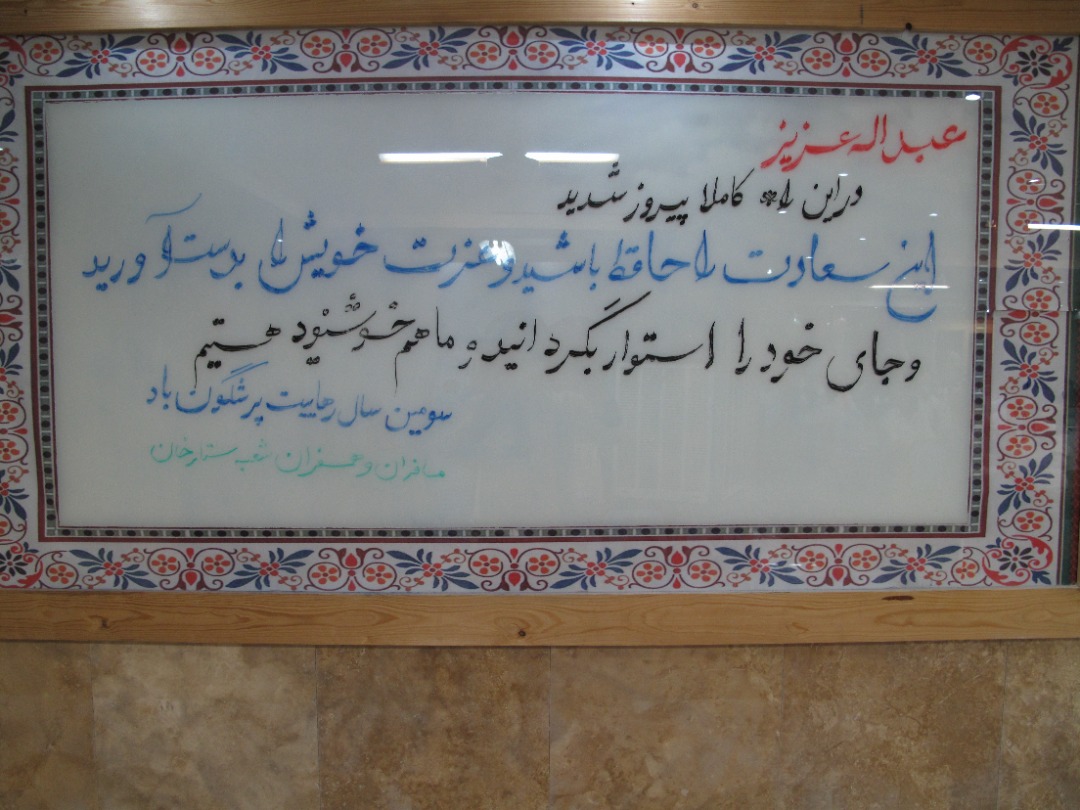 عبداله عزیز
در این راه کاملا پیروز شدید
این سعادت را حافظ باشید و عزت خویش را بدست آورید
و جای خود را استوار بگردانید و ما هم خوشنود هستیم
سومین سال رهاییت پرشگون باد
مسافران و همسفران شعبه ستارخان